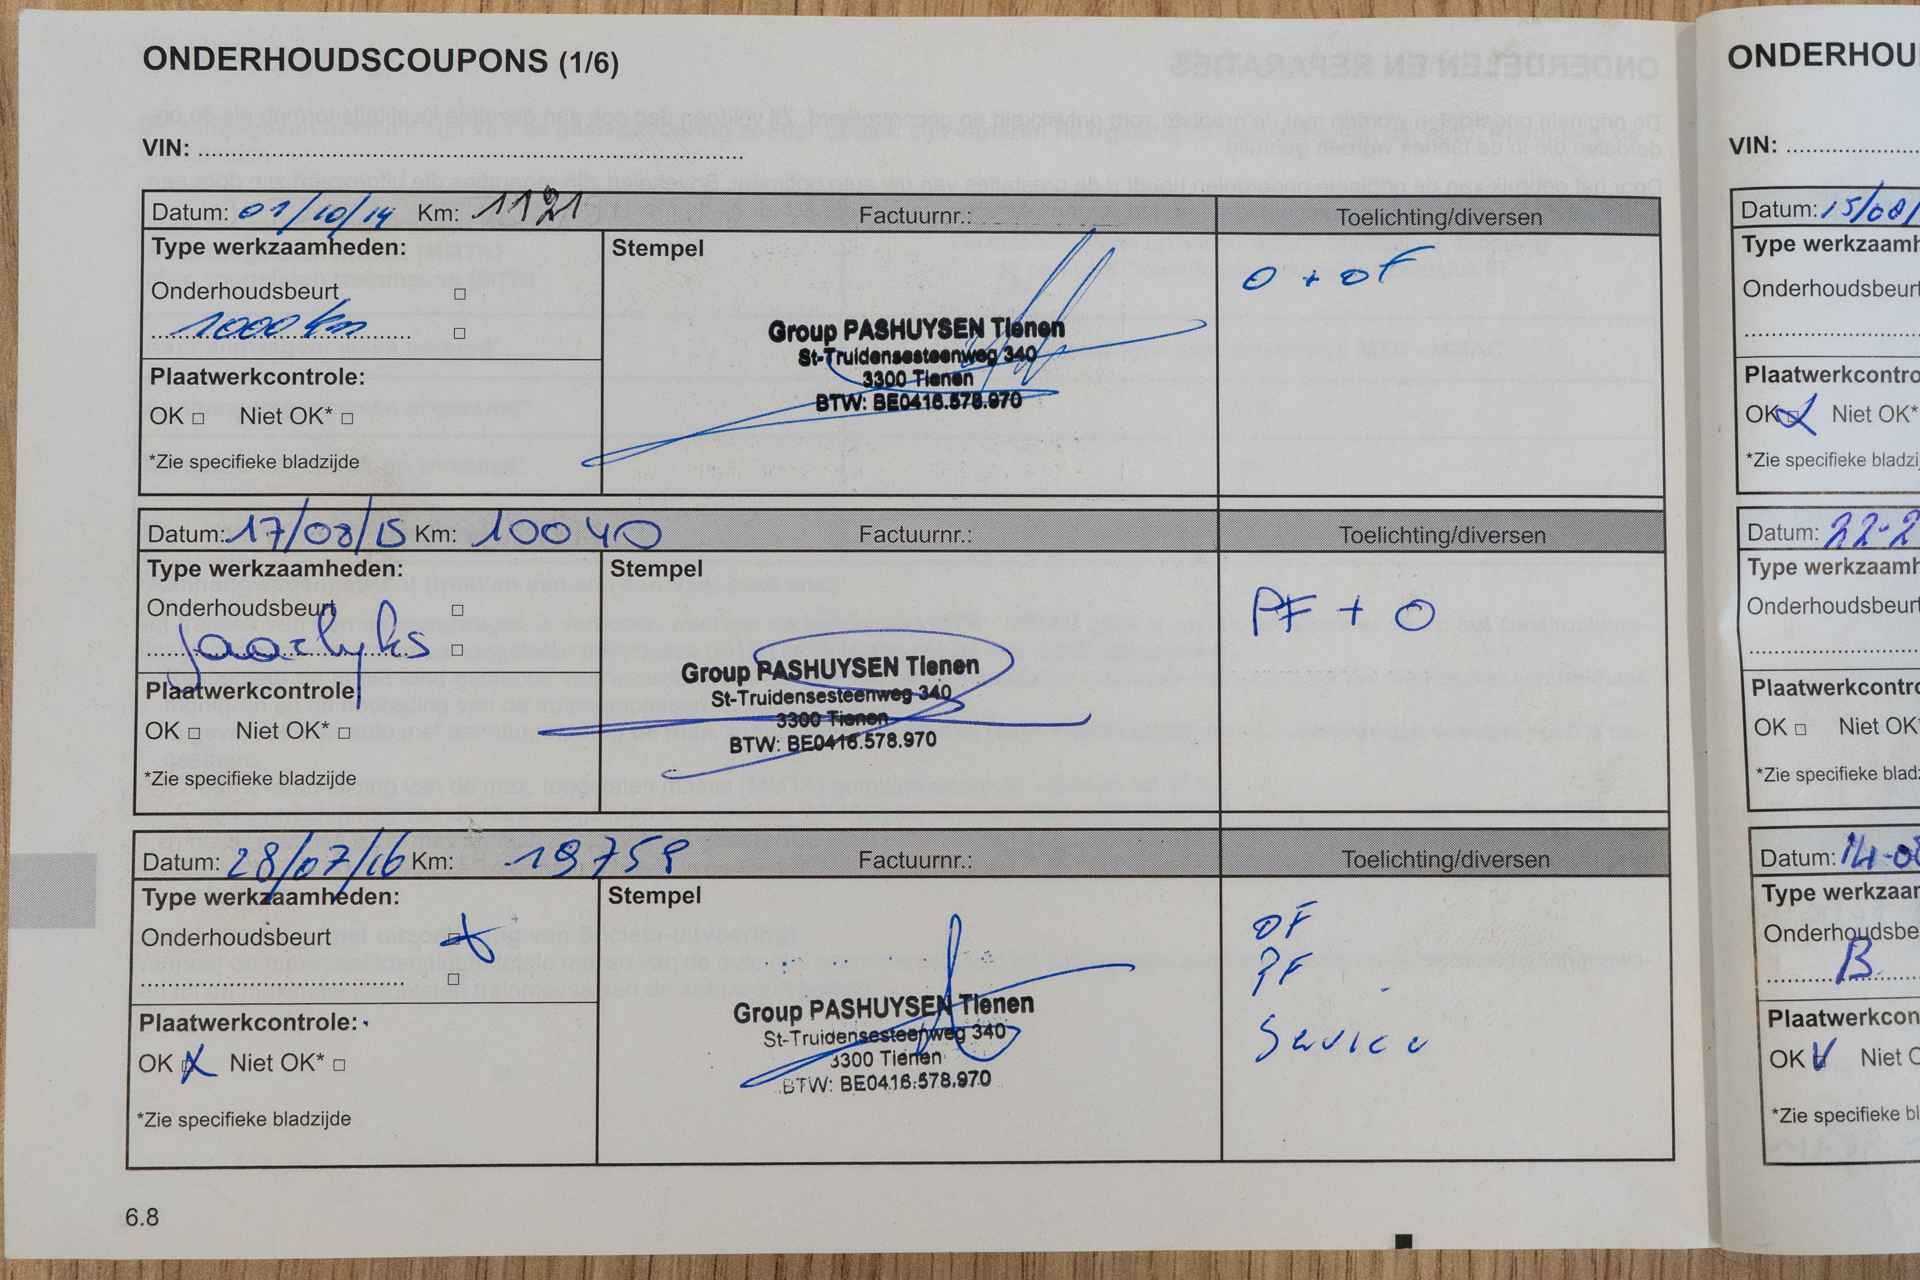 ONDERHOUDSCOUPONS (1/6)
VIN:
Datum: 01/10/14 Km: 1121 Factuurnr.: Toelichting/diversen
Type werkzaamheden: Stempel
O + OF
Onderhoudsbeurt
1000 km
Group PASHUYSEN Tienen
St-Truidensesteenweg 340
3300 Tienen
BTW: BE0416.578.970
Plaatwerkcontrole:
OK Niet OK*
*Zie specifieke bladzijde
Datum: 17/08/15 Km: 10040 Factuurnr.: Toelichting/diversen
Type werkzaamheden: Stempel
Onderhoudsbeurt
Jaarlyks
PF + O
Group PASHUYSEN Tienen
St-Truidensesteenweg 340
3300 Tienen
BTW: BE0416.578.970
Plaatwerkcontrole:
OK Niet OK*
*Zie specifieke bladzijde
Datum: 28/07/16 Km: 19759 Factuurnr.: Toelichting/diversen
Type werkzaamheden: Stempel
Onderhoudsbeurt
OF
PF
Service
Group PASHUYSEN Tienen
St-Truidensesteenweg 340
3300 Tienen
BTW: BE0416.578.970
Plaatwerkcontrole:
OK Niet OK*
*Zie specifieke bladzijde
6.8
ONDERHOU
VIN:
Datum: 15/08/
Type werkzaamh
Onderhoudsbeurt
Plaatwerkcontro
OK Niet OK*
*Zie specifieke bladzi
Datum: 22-2
Type werkzaamh
Onderhoudsbeurt
Plaatwerkcontro
OK Niet OK
*Zie specifieke bladz
Datum: 14-08
Type werkzaam
Onderhoudsbe
B
Plaatwerkcon
OK Niet O
*Zie specifieke bl